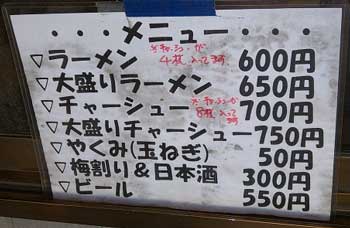 ・・・メニュー・・・
▽ラーメン 600円
※チャーシューが
4枚入ってます
▽大盛りラーメン 650円
▽チャーシュー 700円
※チャーシューが
8枚入ってます
▽大盛りチャーシュー 750円
▽やくみ(玉ねぎ) 50円
▽梅割り&日本酒 300円
▽ビール 550円